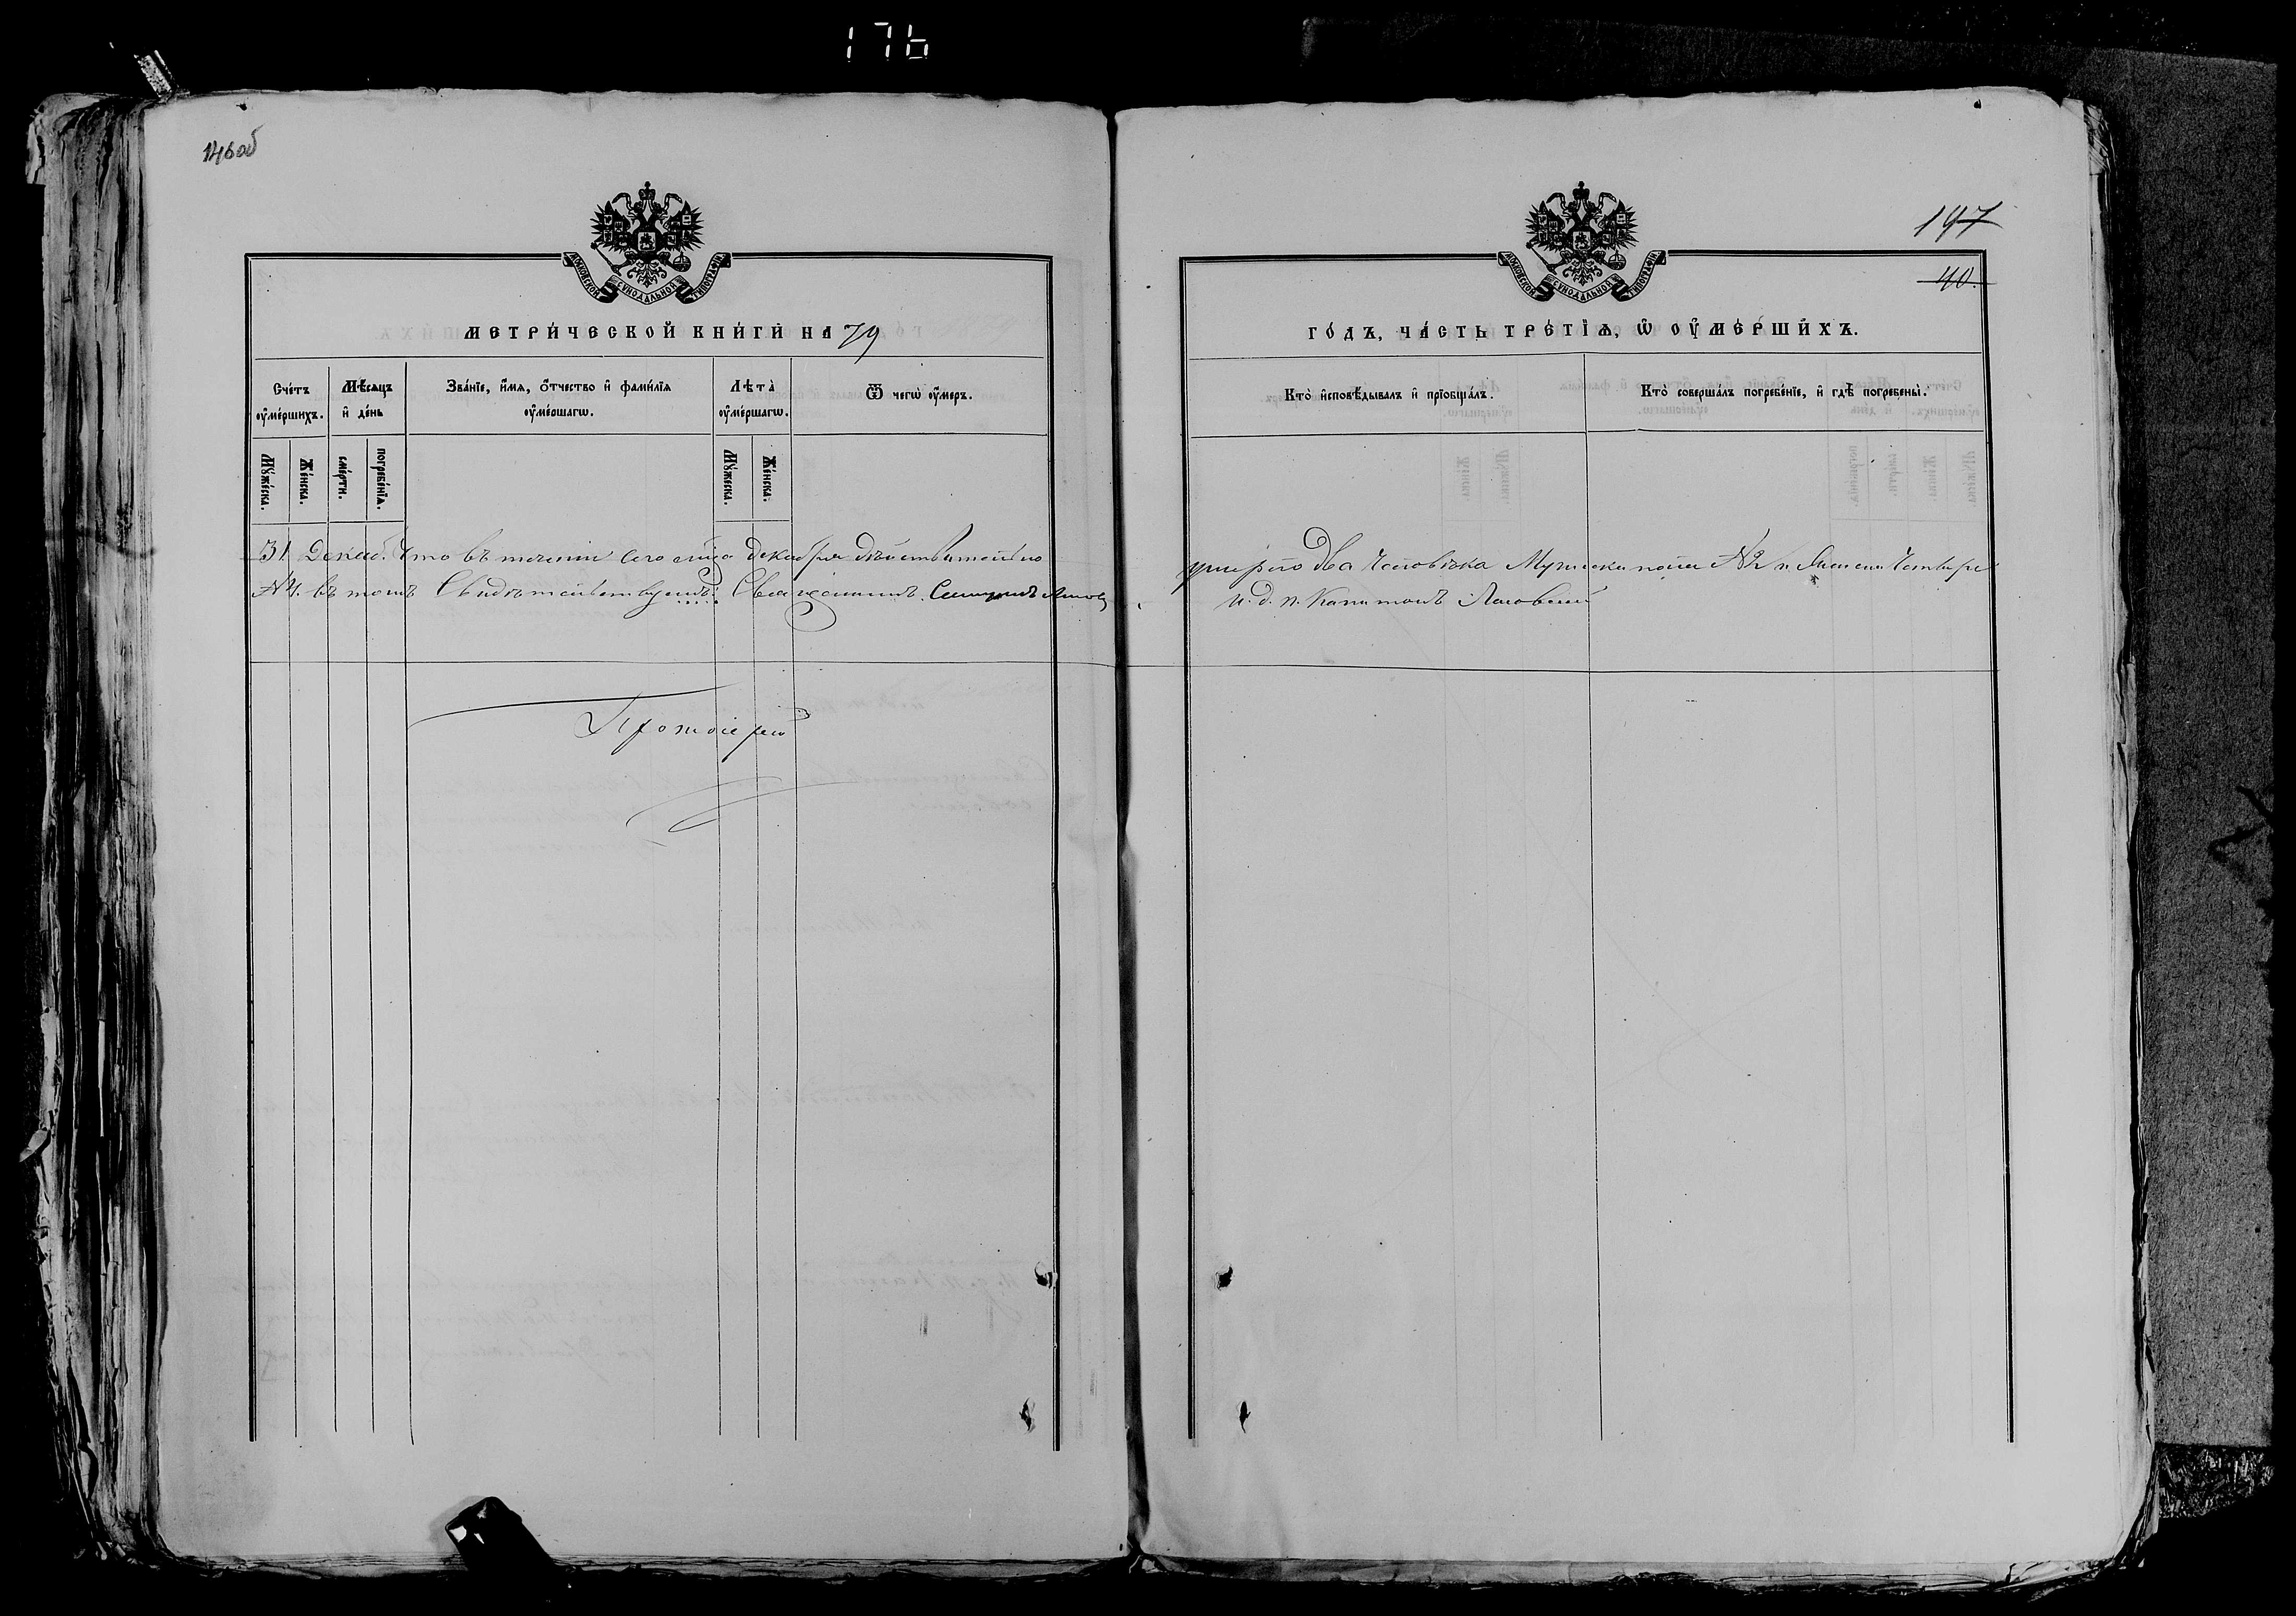 176
146об
МОСКОВСКОЙ СѴНОДАЛЬНОЙ ТИПОГРАФІИ
МЕТРИ́ЧЕСКОЙ КНИ́ГИ НА 79
Сче́тъ оу҆ме́ршихъ.
Мѣ́сяцъ и҆ де́нь
Зва́нїе, и҆́мѧ, ѻ҆́тчество и҆ фами́лїѧ оу҆ме́ршагѡ.
Лѣ́та оу҆ме́ршагѡ.
Ѿ чегѡ̀ оу҆́меръ.
Мꙋ́жеска.
Же́нска.
сме́рти.
погребе́нїѧ.
Мꙋ́жеска.
Же́нска.
31 Декаб. Что въ теченіи сего мѣсяца декабря дѣйствительно
№4. въ томъ Свидѣтельствуемъ: Священникъ
Протоіерей
197
40.
МОСКОВСКОЙ СѴНОДАЛЬНОЙ ТИПОГРАФІИ
ГО́ДЪ, ЧА́СТЬ ТРЕ́ТЇѦ, Ѡ҆ ОУ҆МЕ́РШИХЪ.
Кто̀ и҆сповѣ́дывалъ и҆ прїѻбща́лъ.
Кто̀ соверша́лъ погребе́нїе, и҆ гдѣ̀ погребены̀.
умерло два Человѣка Мужеска пола №2 и Женска Четыре
и. д. п. Капитонъ